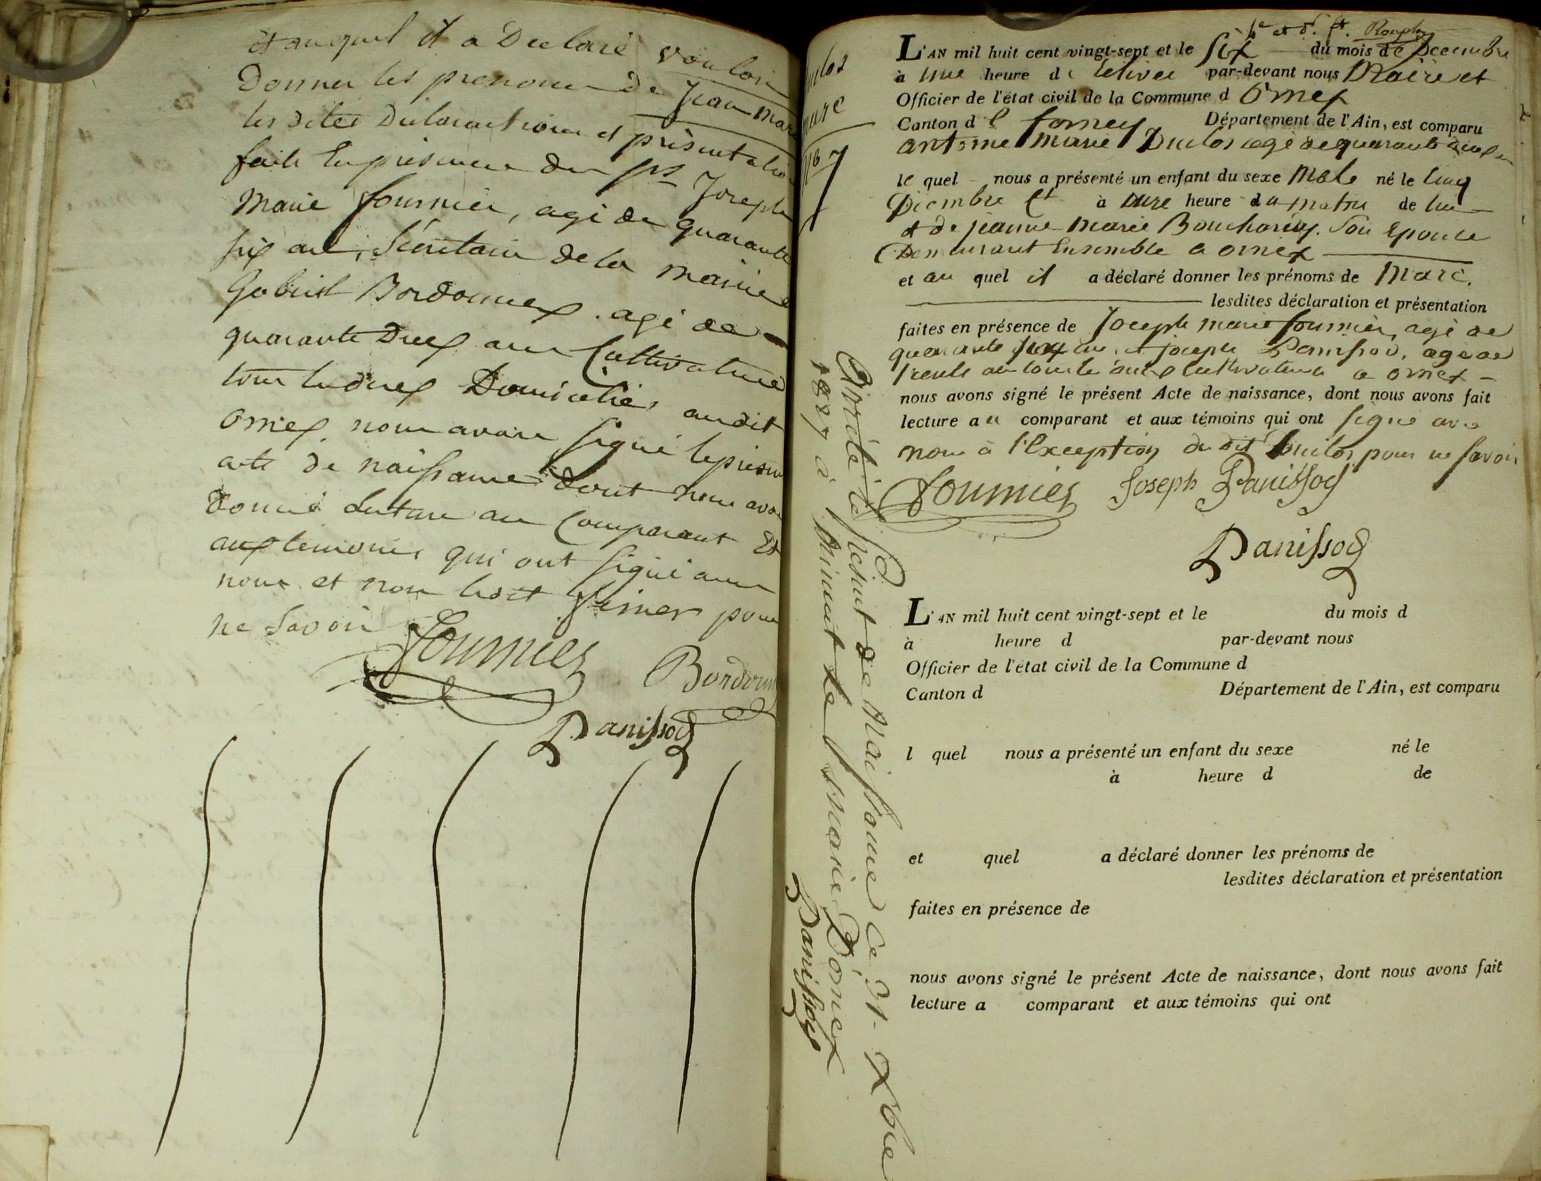 et auquel il a Declaré vouloir
Donner les prenoms de Jean Marc
les dites Déclaration et présentation
faite En présence des Srs Joseph
Marie fournier, agé de quarante
six ans, Sécrétaire de la Mairie
Gabriel Bordonnex agé de
quarante Deux ans Cultivateur
tous les deux Domiciliés audit
Ornex, nous avons signé le présent
acte de naissance dont nous avons
Donné lecture au Comparant Et
aux témoins qui ont signé avec
nous et non pour
ne savoir
Fournier
Panissod
Duclos
Marc
L'AN mil huit cent vingt-sept et le Six du mois de Decembre
à une heure de relevée par-devant nous Maire et
Officier de l'état civil de la Commune d Ornex
Canton d Département de l'Ain, est comparu
antoine Marie Duclos agé de quarante
le quel nous a présenté un enfant du sexe Male né le Cinq
Décembre Ct à onze heure du matin de lui
et de jeanne Marie Son Epouse
Demeurant Ensemble a ornex
et au quel il a déclaré donner les prénoms de Marc.
lesdites déclaration et présentation
faites en présence de Joseph marie fournier, agé de
quarante six ans, et joseph Panissod, agé de
trente ans tous les deux Cultivateurs a ornex
nous avons signé le présent Acte de naissance, dont nous avons fait
lecture au comparant et aux témoins qui ont signé avec
nous à l'Exception du dit Duclos pour ne savoir
Fournier Joseph Panissod
Panissod
Arrêté le présent de Naissance ce 31 Xbre
1827 à Minuit le Maire D'ornex
Panissod
L'AN mil huit cent vingt-sept et le du mois d
à heure d par-devant nous
Officier de l'état civil de la Commune d
Canton d Département de l'Ain, est comparu
l quel nous a présenté un enfant du sexe né le
à heure d de
et quel a déclaré donner les prénoms de
lesdites déclaration et présentation
faites en présence de
nous avons signé le présent Acte de naissance, dont nous avons fait
lecture a comparant et aux témoins qui ont